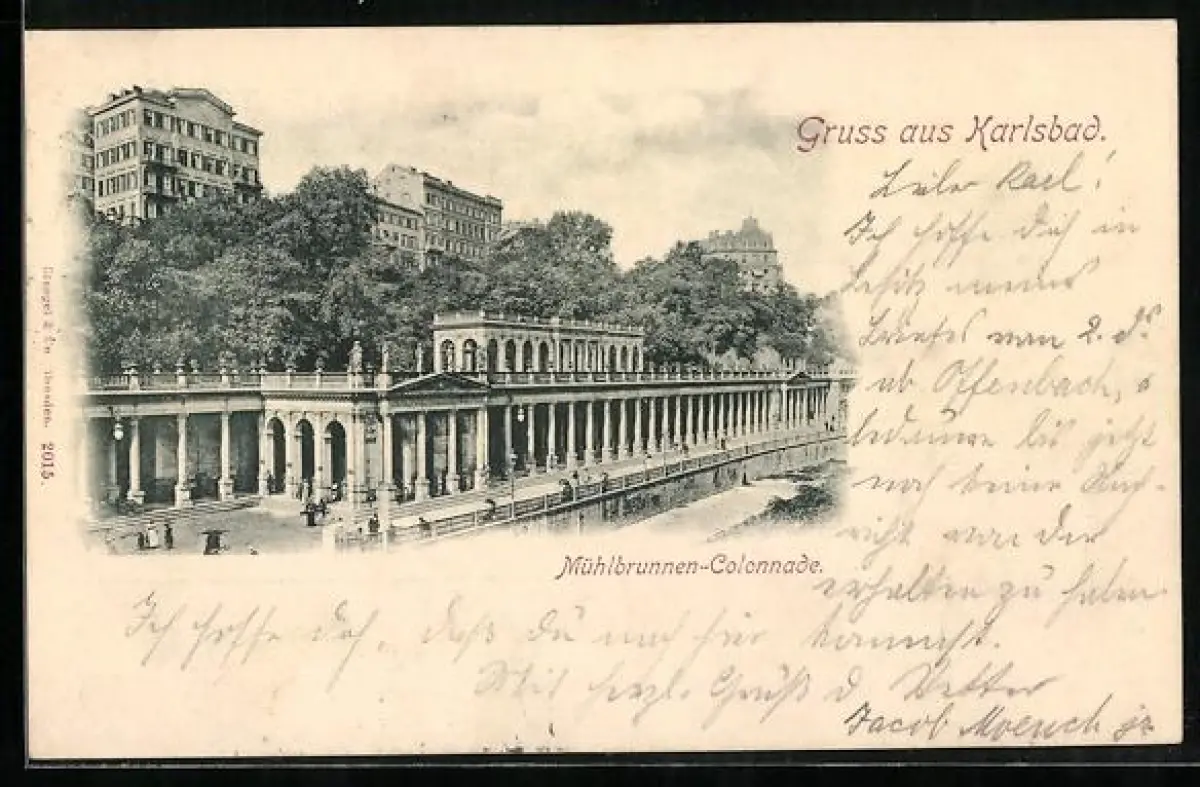 Gruss aus Karlsbad.
Lieber Karl!
Ich hoffe dich in
Besitz meines
Briefes vom 2. ds.
ab Offenbach,
bis jetzt
noch keine Nach-
richt von Dir
erhalten zu haben
Mühlbrunnen-Colonnade.
Ich hoffe doch, daß Du noch hier kommst.
Mit herzl. Gruß d. Vetter
Jacob jr
Stengel & Co., Dresden. 2015.